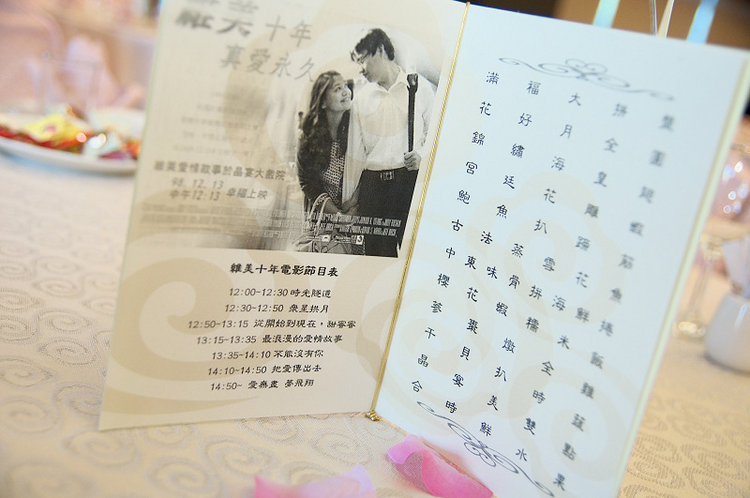 羅美十年
真愛永久
羅美愛情故事於晶宴大戲院
98.12.13
中午12:13 幸福上映
羅美十年電影節目表
12:00~12:30 時光隧道
12:30~12:50 眾星拱月
12:50~13:15 從開始到現在，甜蜜蜜
13:15~13:35 最浪漫的愛情故事
13:35~14:10 不能沒有你
14:10~14:50 把愛傳出去
14:50~ 愛無盡 夢飛翔
滿福大拼盤
花好月全圓
錦繡海皇翅
宮廷花雕蝦
鮑魚扒蹄菇
古法蒸雪花魚
中東味骨拼海鮮捲
櫻花蝦糯米飯
蔘棗燉全雞
干貝扒時蔬
晶宴美雙點
合時鮮水果